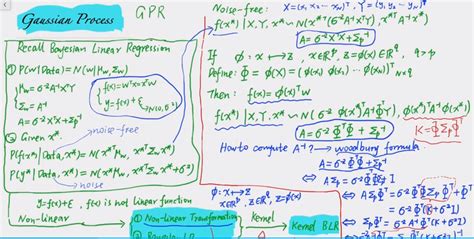 Gaussian Process GPR
Recall Bayesian Linear Regression
① P(w|Data) = N(w|μw, Σw)
μw = σ⁻²A⁻¹XᵀY
Σw = A⁻¹
A = σ⁻²XᵀX + Σp⁻¹
f(x) = wᵀx = xᵀw
y = f(x) + ε
N(0, σ²)
② Given x*
noise-free
P(f(x*)|Data, x*) = N(x*ᵀμw, x*ᵀΣw x*)
P(y*|Data, x*) = N(x*ᵀμw, x*ᵀΣw x* + σ²)
noise
y = f(x) + ε, f(x) is not linear function
Non-linear
① Non-linear Transformation
kernel
Kernel BLR
φ: x ↦ z
x∈ℝᵖ, z∈ℝ^q, z = φ(x)
Noise-free:
f(x*) | X, Y, x* ~ N(x*ᵀ(σ⁻²A⁻¹XᵀY), x*ᵀA⁻¹x*)
A = σ⁻²XᵀX + Σp⁻¹
If φ: x ↦ z, x∈ℝᵖ, z = φ(x)∈ℝ^q, q > p
Define: Φ = φ(X) = (φ(x₁), φ(x₂) ... φ(x_N))ᵀ N×q
Then: f(x) = φ(x)ᵀw
f(x*) | X, Y, x* ~ N(σ⁻² φ(x*)ᵀA⁻¹ΦᵀY, φ(x*)ᵀA⁻¹φ(x*))
A = σ⁻² ΦᵀΦ + Σp⁻¹
How to compute A⁻¹? → woodbury formula
K = ΦΣpΦᵀ
⇔ A = σ⁻² ΦᵀΦ + Σp⁻¹
⇔ AΣp = σ⁻² ΦᵀΦΣp + I
⇔ AΣpΦᵀ = σ⁻² ΦᵀΦΣpΦᵀ + Φᵀ
= σ⁻² Φᵀ(K + σ²I)